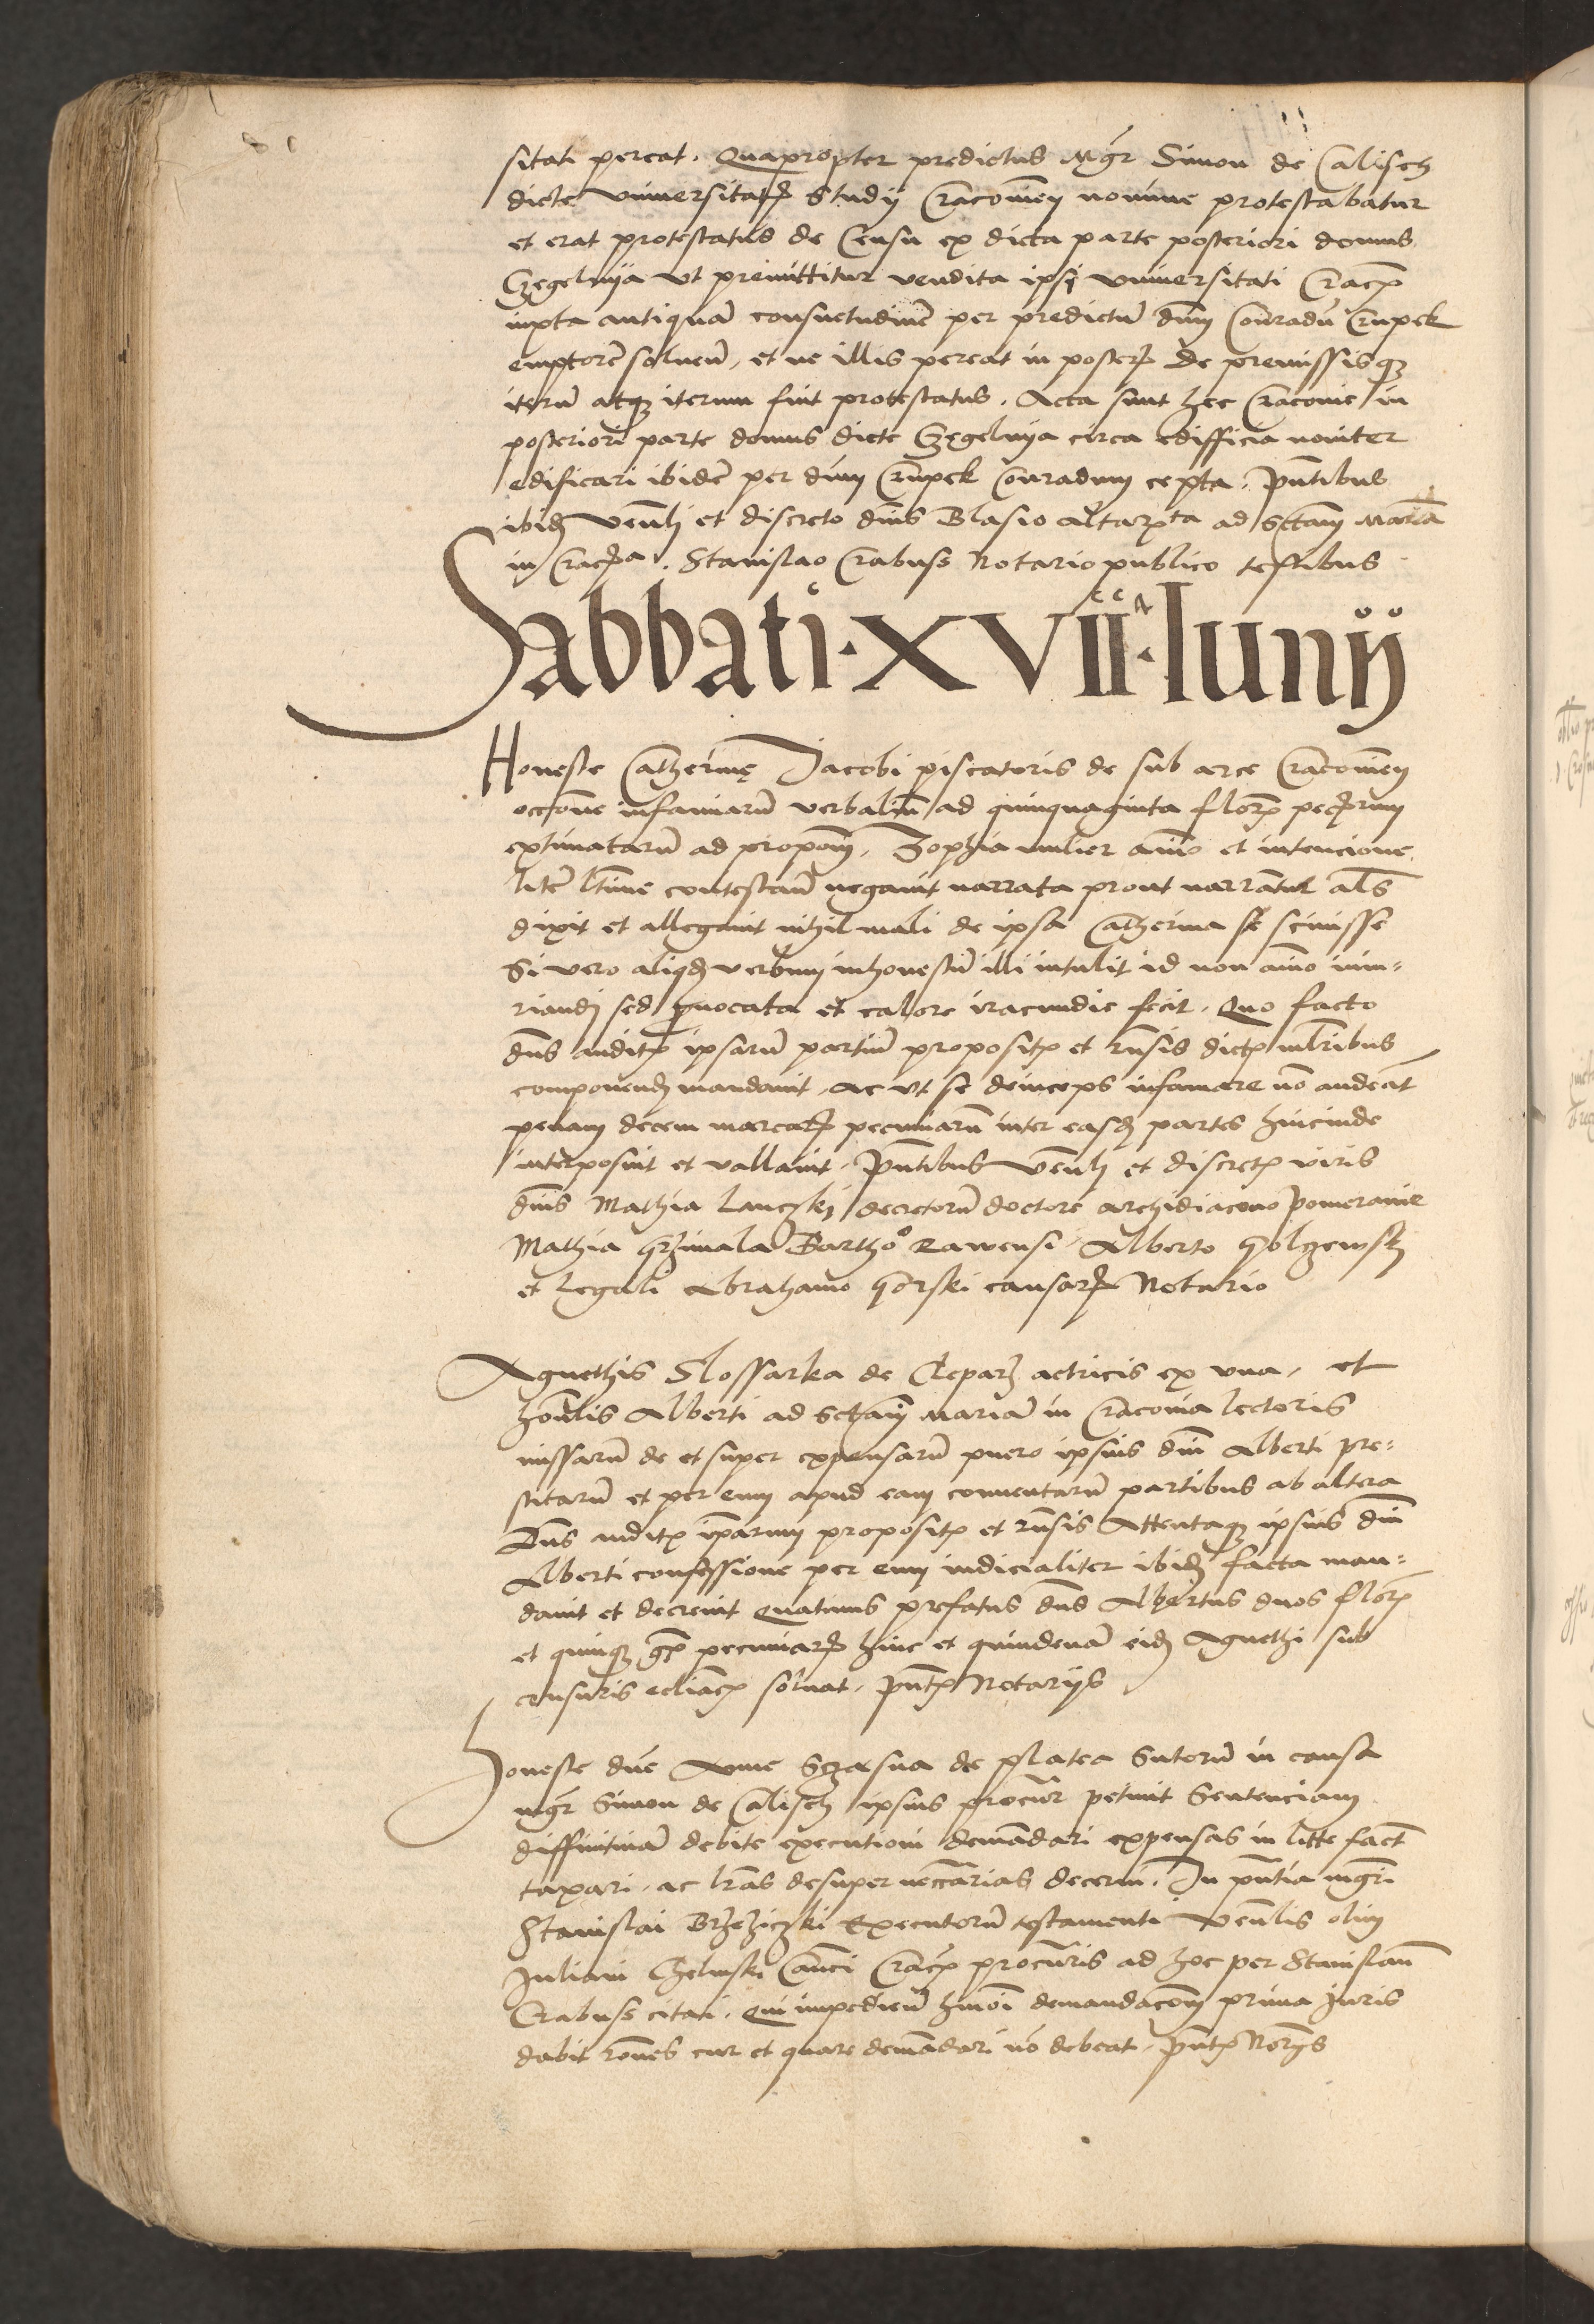 sitati pereat. Quapropter predictus Mgr Simon de Calisch
dicte universitatis Studij Cracovien nomine protestabatur
et erat protestatus de Censu ex dicta parte posteriori domus
Czegelnya ut premittitur vendita ipsi universitati Crac
iuxta antiquã consuetudinẽ per predictũ dnm Conradũ Crupek
emptorẽ solven, et ne illis pereat in poster de premissisq
iterũ atq iterum fuit protestatus. Acta sunt hec Cracovie in
posteriori parte domus dicte Czegelnya circa edifficia noviter
edificari ibidẽ per dnm Crupek Conradum cepta. Pntibus
ibid venli et discreto dnis Blasio altarista ad sctam Mariã
in Crac. Stanislao Crabuss Notario publico testibus
Sabbati · XVII · Iunij
Honeste Catherine Jacobi piscatoris de sub arce Cracovien
occõne infamiarũ verbaliũ ad quinquaginta floren pecuniarum
extimatarũ ad propõnem. Zophia mulier animo et intencione
litẽ ltime contestan negavit narrata prout narrantur als
dixit et allegavit nihil mali de ipsa Catherina se scivisse
Si vero aliqd verbum inhonestũ illi intulit id non animo iniu-
riandi sed provocata et calore iracundie fecit. Quo facto
dns auditis ipsarũ partiũ propositis et rnsis dictis mlribus
componend mandavit. Ac ut se deinceps infamare nõ audeãt
penam decem marcarum pecuniarũ inter easd partes hincinde
interposuit et vallavit. Pntibus Venli et discretis viris
dnis Mathia Lanczki decretorũ doctore archidiacono Pomeranie
Mathia Grzimala Bartho Rawensi Alberto Golgewski
et legali Abrahamo Gorski causarum Notario
Agnethis Slossarka de Clepar actricis ex una. et
honlis Alberti ad sctam Mariã in Cracovia lectoris
missarũ de et super expensarũ puero ipsius dni Alberti pre-
stitarũ et per eum apud eam conventarũ partibus ab altera
Dns auditis iparum propositis et rnsis Attentaq ipsius dni
Alberti confessione per eum iudicialiter ibid facta man-
davit et decrevit quatinus prefatus dns Albertus duos floren
et quinq gr pecuniarum hinc et quindenã eid Agnethi sub
censuris eccliacis solvat. Pntibus Notarijs
Honeste dne Anne de platea Sutorũ in causa
mgr Simon de Calisch ipsius procur petivit Sentenciam
diffinitivã debite executioni demãdari expensas in litte fact
taxari. ac lras desuper neccarias decerni. In pntia mgri
Stanislai Brzeziczki Executorũ testamenti Venlis olim
Juliani Chelmski Canci Crac procuris ad hoc per Stanislaũ
Crabuss citati. qui impedien hmõi demandacõem prima Juris
dabit rones cur et quare demãdari nõ debeat. Pntibus Notarijs